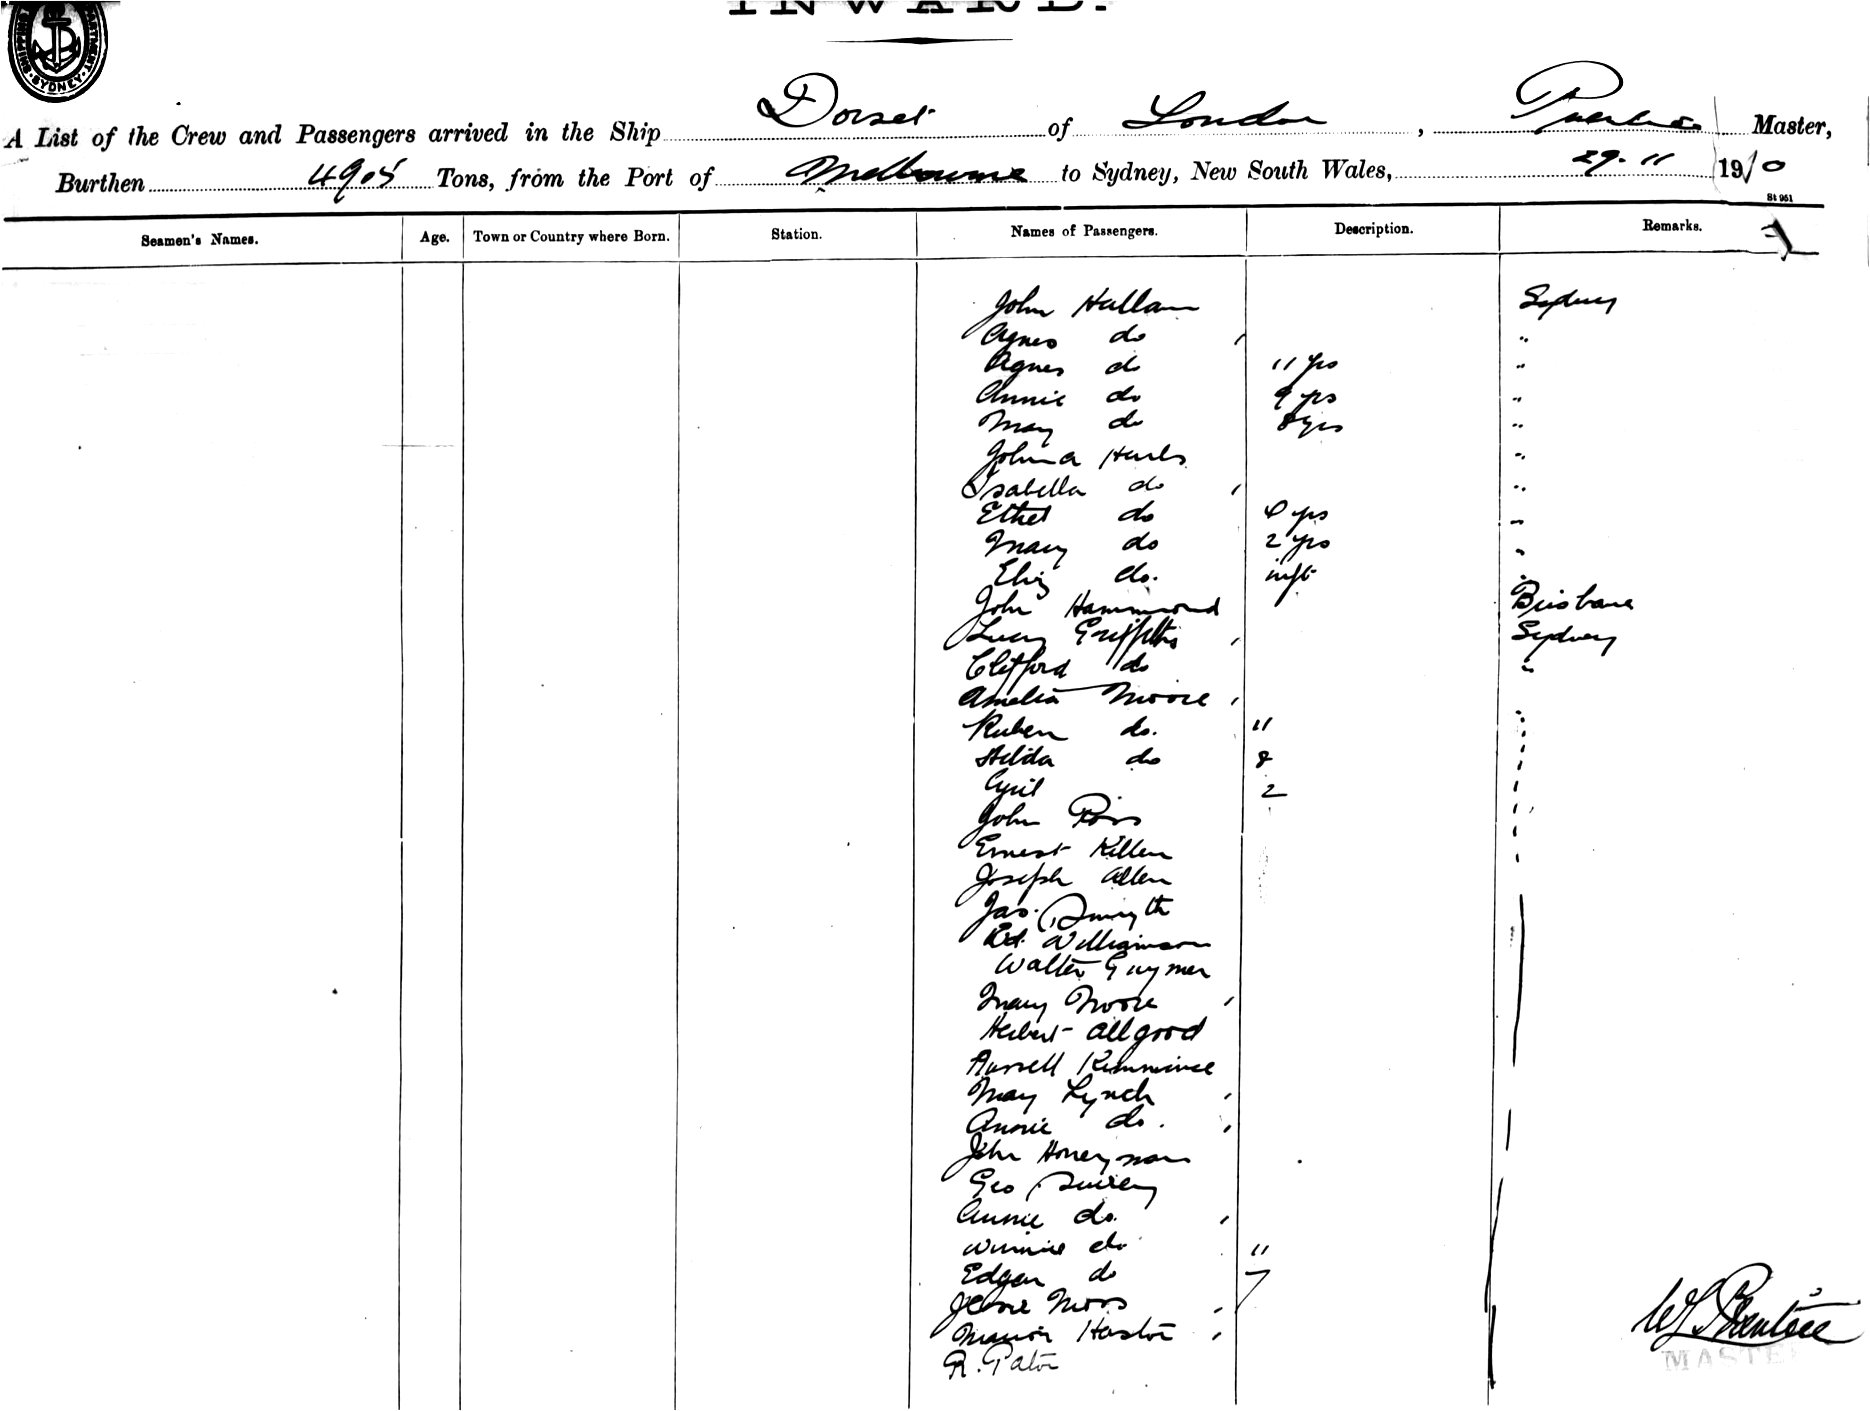 INWARD.
SHIPPING DEPARTMENT SYDNEY
A List of the Crew and Passengers arrived in the Ship Dorset of London, Master,
Burthen 4905 Tons, from the Port of Melbourne to Sydney, New South Wales, 29-11 1910
St 951
Seamen's Names. Age. Town or Country where Born. Station. Names of Passengers. Description. Remarks.
John Hallam Sydney
Agnes do "
Agnes do 11 yrs "
Annie do 9 yrs "
May do 8 yrs "
John A "
Isabella do "
Ethel do yrs "
Mary do 2 yrs "
Eliz do. inft "
John Hammond Brisbane
Lucy Griffiths Sydney
Clifford do "
Amelia Moore
Ruben do. 11
Hilda do 8
Cyril 2
John
Ernest Killen
Joseph Allen
Jas. Smyth
Williamson
Walter Guymer
Mary Moore
Herbert Allgood
May Lynch
Annie do.
John Honeyman
Geo
Annie do.
Winnie do 11
Edgar do 7
R. Paton
MASTER